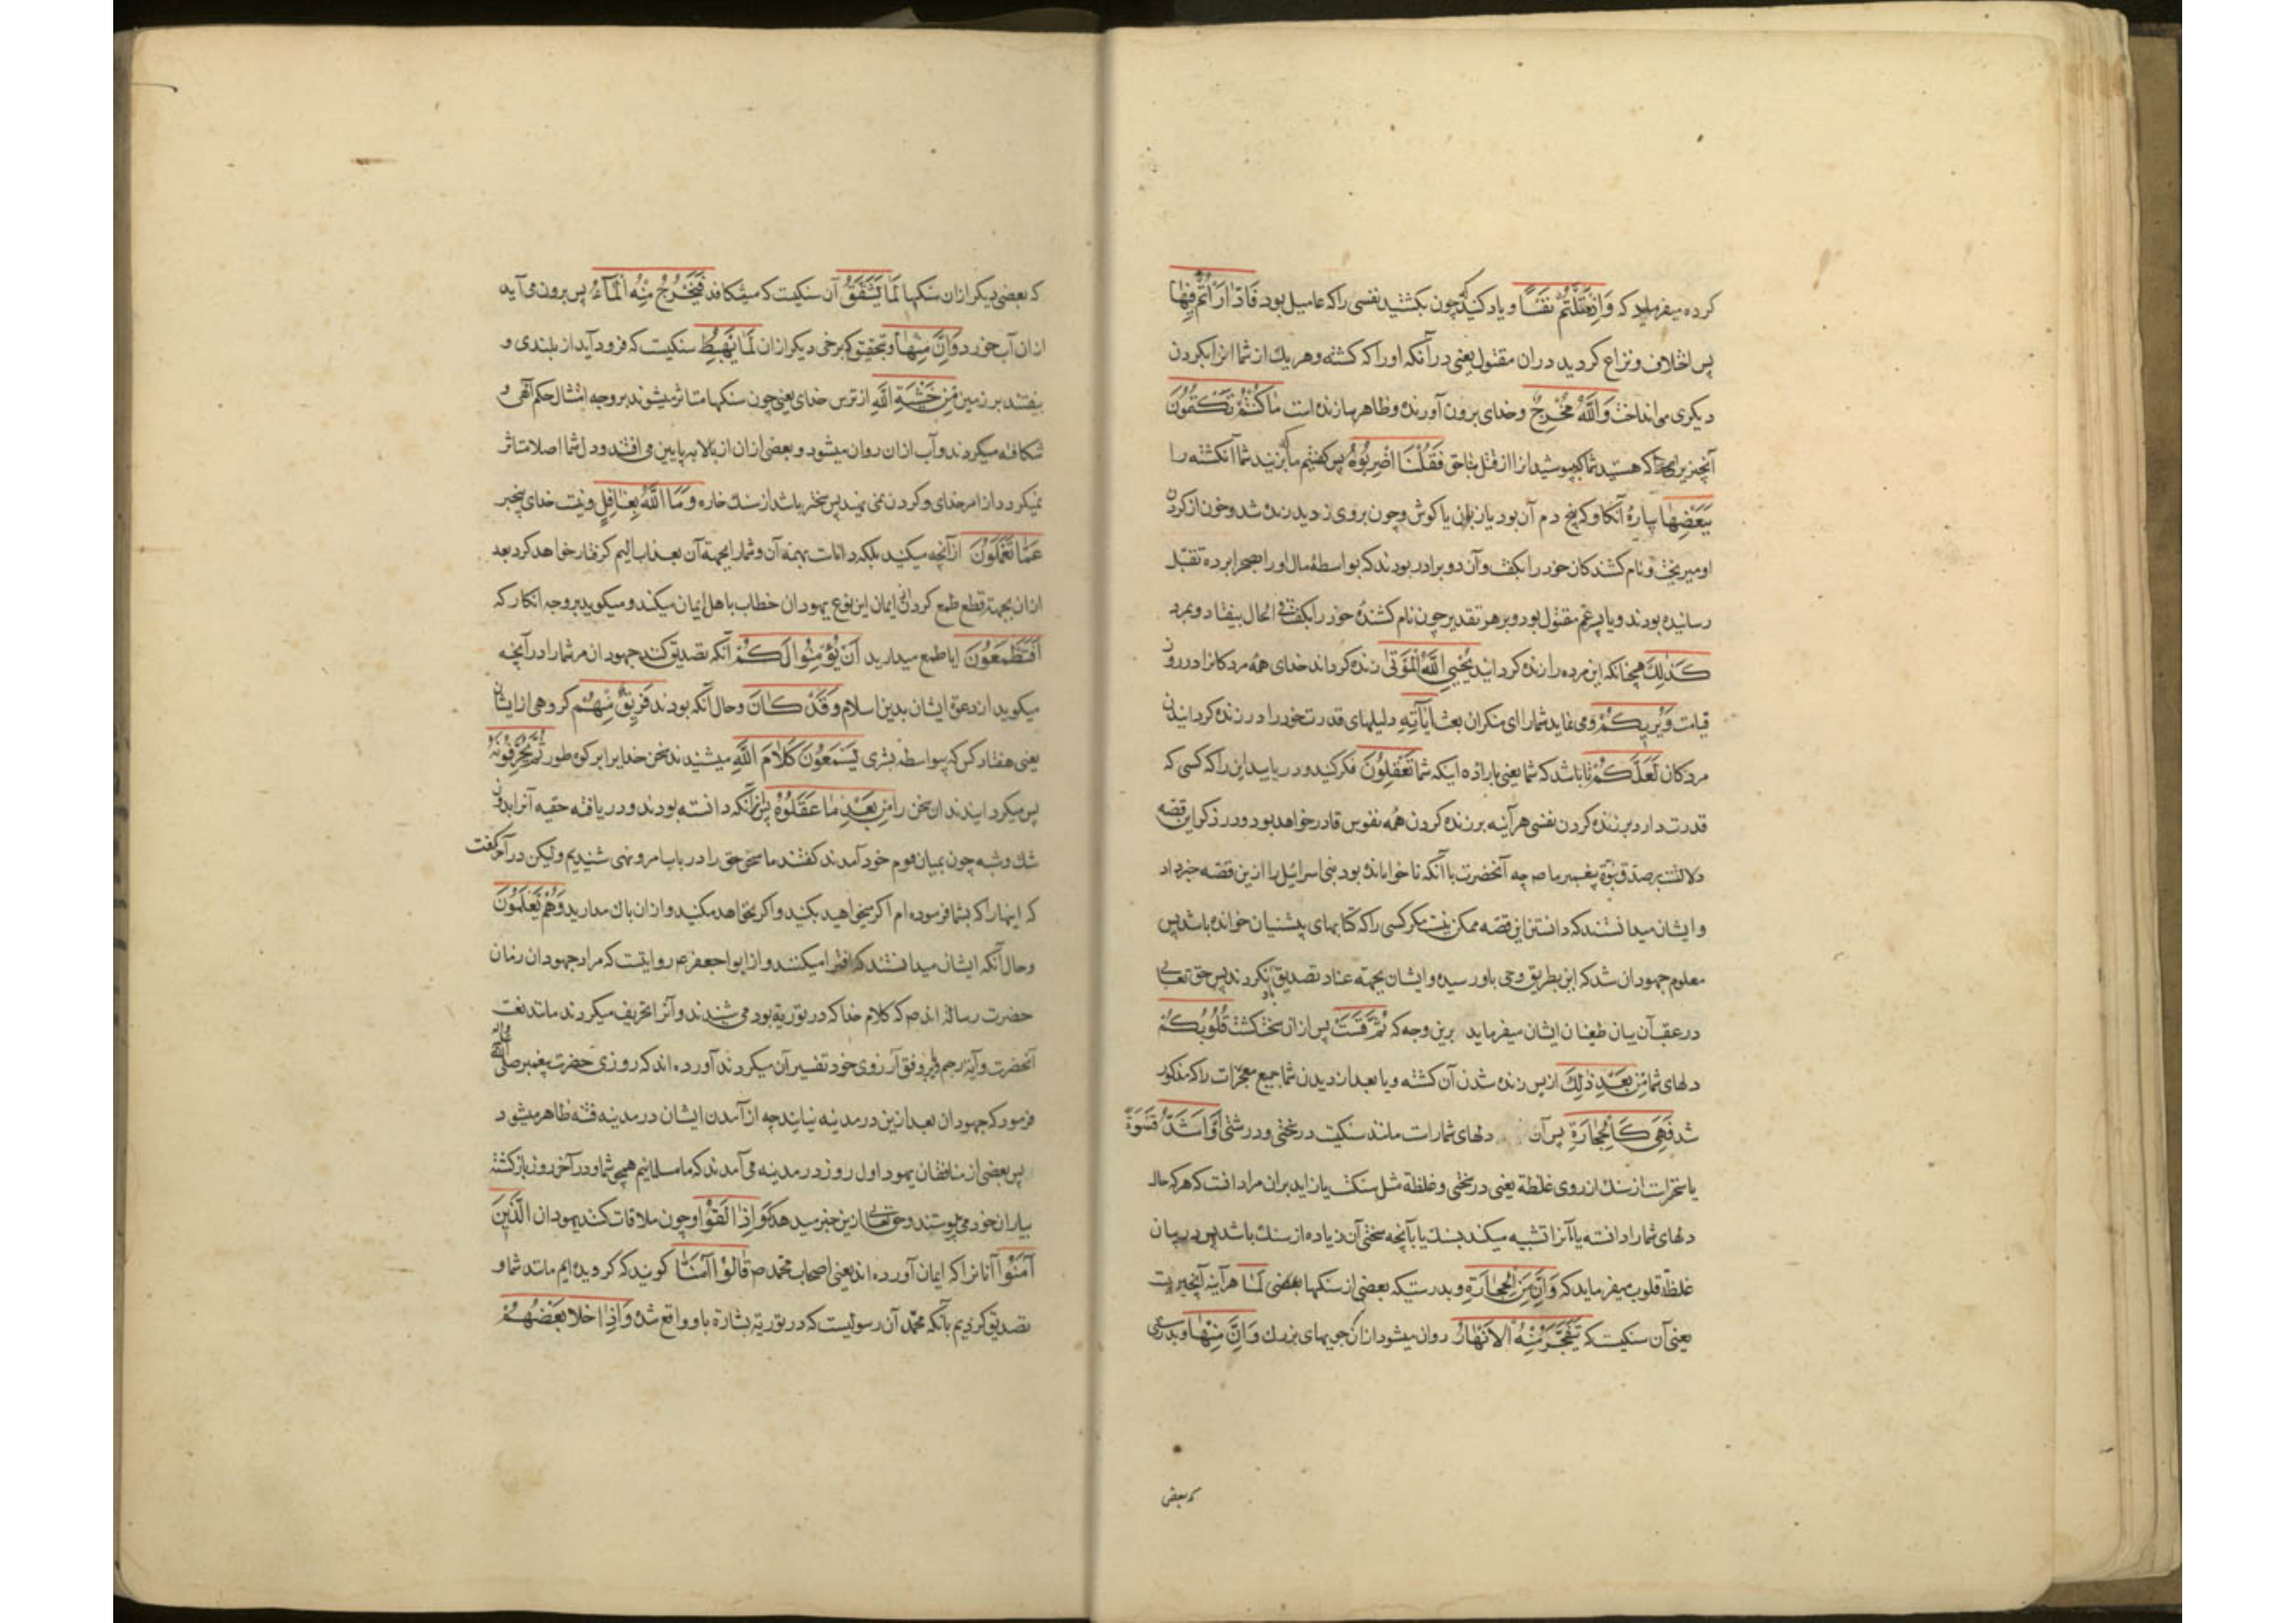 کرده میفرماید که وَاِذْ قَتَلْتُمْ نَفْسًا و یاد کنید که چون بکشتید نفسی را که عامیل بود فَادّٰارَاْتُمْ فِیهٰا
پس اختلاف و نزاع کردید در ان مقتول یعنی در آنکه او را که کشته و هر یك از شما انرا بکردن
دیکری می انداخت وَاللّٰهُ مُخْرِجٌ و خدای برون آورنده و ظاهر سازنده است مٰا كُنْتُمْ تَكْتُمُونَ
آنچیزیرا که هستید شما که میپوشید انرا از قتل بناحق فَقُلْنَا اضْرِبُوهُ پس کفتیم ما که بزنید شما آنکشته را
بِبَعْضِهٰا بپارهٔ آنکاو که بیخ دم آن بود یا زبان یا کوش و چون بر وی زدید زنده شد و خون از کردن
او میریخت و نام کشندکان خود را بکفت و آن دو برادر بودند که بواسطهٔ مال او را بصحرا برده بقتل
رسانیده بودند و یا پسر عم مقتول بود و بر هر تقدیر چون نام کشندهٔ خود را بکفت فی الحال بیفتاد و بمرد
كَذٰلِكَ همچنانکه این مرده را زنده کردانید یُحْیِی اللّٰهُ الْمَوْتٰی زنده کرداند خدای همهٔ مردکانرا در روز
قیامت وَیُرِیكُمْ و می نماید شما را ای منکران بعث اٰیٰاتِهِ دلیلهای قدرت خود را در زنده کردانیدن
مردکان لَعَلَّكُمْ تا باشد که شما یعنی باراده اینکه شما تَعْقِلُونَ فکر کنید و دریابید این را که کسی که
قدرت دارد بر زنده کردن نفسی هر آینه بر زنده کردن همه نفوس قادر خواهد بود و در ذکر این قصه
دلالتست بر صدق نبوّة پیغمبر ما ص چه آنحضرت با آنکه ناخوانده بود بنی اسرائیل را ازین قصه خبر داد
و ایشان میدانستند که دانستن این قصه ممکن نیست مکر کسی را که کتابهای پیشینیان خوانده باشد پس
معلوم جهودان شد که این بطریق وحی باو رسیده و ایشان بجهة عناد تصدیق او نکردند پس حق تعالی
در عقب آن بیان طغیان ایشان میفرماید برین وجه که ثُمَّ قَسَتْ پس از ان سخت کشت قُلُوبُكُمْ
دلهای شما مِنْ بَعْدِ ذٰلِكَ از پس زنده شدن آن کشته و یا بعد از دیدن شما جمیع معجزات را که مذکور
شد فَهِیَ كَالْحِجٰارَةِ پس آن دلهای شما راست مانند سنکیست در سختی و درشتی اَوْ اَشَدُّ قَسْوَةً
یا سختر است از سنك از روی غلظة یعنی در سختی و غلظة مثل سنکست یا زاید بران مراد انست که هر که حال
دلهای شما را دانسته یا آنرا تشبیه میکند بسنك یا بآنچه سختی آن زیاده از سنك باشد پس در بیان
غلظة قلوب میفرماید که وَاِنَّ مِنَ الْحِجٰارَةِ و بدرستیکه بعضی از سنکها لَمٰا هر آینه آنچیزیست
یعنی آن سنکیست که یَتَفَجَّرُ مِنْهُ الْاَنْهٰارُ روان میشود از ان جویهای بزرك وَاِنَّ مِنْهٰا و بدرستی
که بعضی
که بعضی دیکر از ان سنکها لَمٰا یَشَّقَّقُ آن سنکیست که میشکافد فَیَخْرُجُ مِنْهُ الْمٰآءُ پس برون می آید
از ان آب خورد وَاِنَّ مِنْهٰا و بتحقیق که برخی دیکر از ان لَمٰا یَهْبِطُ سنکیست که فرود آید از بلندی و
بیفتد بر زمین مِنْ خَشْیَةِ اللّٰهِ از ترس خدای یعنی چون سنکها متاثر میشوند بر وجه امتثال حکم الهی و
شکافته میکردند و آب از ان روان میشود و بعضی از ان از بالا به پایین می افتد و دل شما اصلا متاثر
نمیکردد از امر خدای و کردن نمی نهید پس سختر باشد از سنك خاره وَمَا اللّٰهُ بِغٰافِلٍ و نیست خدای بیخبر
عَمّٰا تَعْمَلُونَ از آنچه میکنید بلکه داناست بهمهٔ آن و شما را بجهة آن بعذاب الیم کرفتار خواهد کرد بعد
از ان بجهة قطع طمع کردن از ایمان این نوع یهودان خطاب با اهل ایمان میکند و میکوید بر وجه انکار که
اَفَتَطْمَعُونَ ایا طمع میدارید اَنْ یُؤْمِنُوا لَكُمْ آنکه تصدیق کنند جهودان مر شما را در آنچه
میکویید از دعوة ایشان بدین اسلام وَقَدْ كٰانَ و حال آنکه بودند فَرِیقٌ مِنْهُمْ کروهی از ایشان
یعنی هفتاد کس که بیواسطهٔ بشری یَسْمَعُونَ كَلٰامَ اللّٰهِ میشنیدند سخن خدایرا بر کوه طور ثُمَّ یُحَرِّفُونَهُ
پس میکردانیدند ان سخن را مِنْ بَعْدِ مٰا عَقَلُوهُ پس از آنکه دانسته بودند و دریافته حقیة آنرا بدون
شك و شبه چون بمیان قوم خود آمدند کفتند ما سخن حق را در باب امر و نهی شنیدیم ولیکن در آخر کفت
که اینها را که بشما فرموده ام اکر میخواهید بکنید و اکر نخواهید مکنید و از ان باك مدارید وَهُمْ یَعْلَمُونَ
و حال آنکه ایشان میدانستند که افترا میکنند و از ابو جعفر ع روایتست که مراد جهودان زمان
حضرت رسالة اند ص که کلام خدا که در توریة بود می شنیدند و آنرا تحریف میکردند مانند نعت
آنحضرت و آیهٔ رجم و بر وفق آرزوی خود تفسیر آن میکردند آورده اند که روزی حضرت پیغمبر صلی الله علیه وآله
فرمود که جهودان بعد ازین در مدینه نیایند چه از آمدن ایشان در مدینه فتنه ظاهر میشود
پس بعضی از منافقان یهود اول روز در مدینه می آمدند که ما مسلمانیم همچو شما و در آخر روز بازکشته
بیاران خود می پیوستند و حق تعالی ازین خبر میدهد که وَاِذٰا لَقُوا و چون ملاقات کنند یهودان الَّذِینَ
آمَنُوا آنانرا که ایمان آورده اند یعنی اصحاب محمد ص قٰالُوْا آمَنّٰا کویند که کرویده ایم مانند شما و
تصدیق کردیم بآنکه محمد آن رسولیست که در توریة بشارة باو واقع شده وَاِذٰا خَلٰا بَعْضُهُمْ